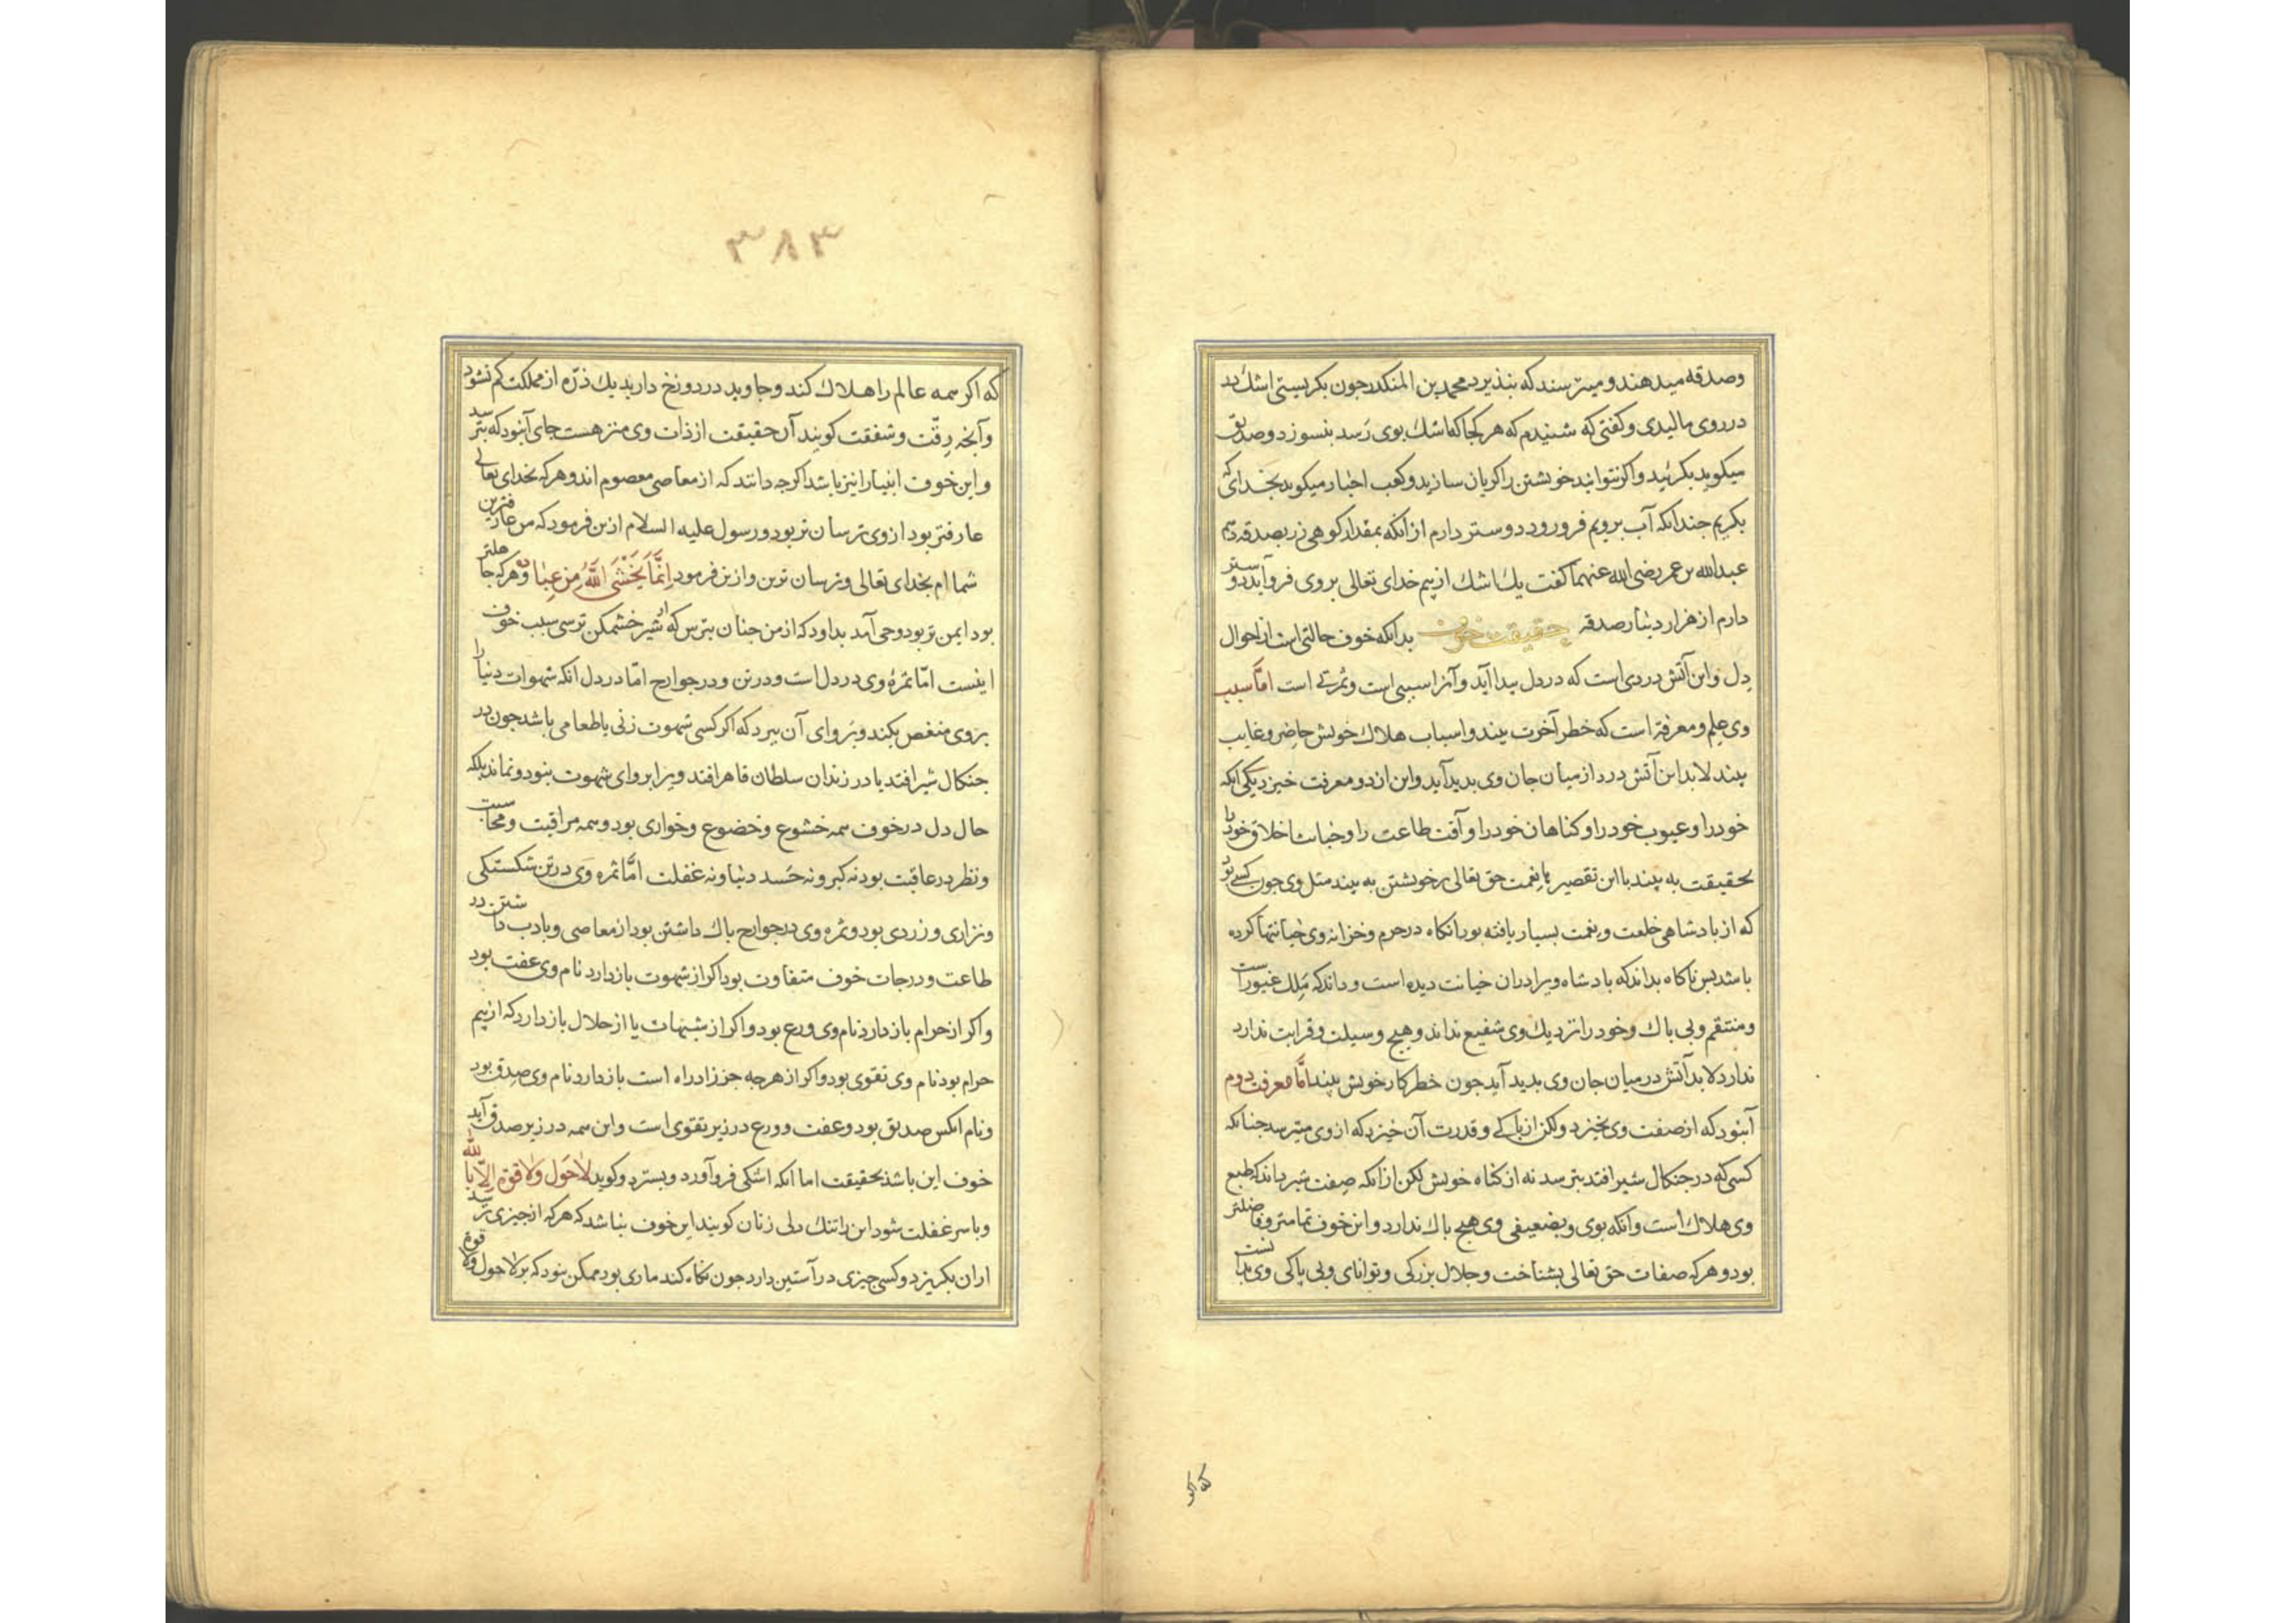 وصدقه میدهند و میترسند که بنذیرد محمد بن المنکدر جون بکریستی اشک بر
در روی مالیدی و کفتی که شنیدم که هر کجا که اشک بوی رسد بنسوزد و صدیق
میکوید بکریید و اکر نتوانید خویشتن را کریان سازید و کعب احبار میکوید بخدای که
بکریم جندانکه آب برویم فرو رود دوستر دارم از انکه بمقدار کوهی زر بصدقه دهم
عبدالله بن عمر رضی الله عنهما کفت یک اشک از بیم خدای تعالی بر وی فرو آید دوستر
دارم از هزار دینار صدقه حقیقت خوف بدانکه خوف حالتی است از احوال
دل و این آتش دردی است که در دل پیدا آید و آنرا سببی است و ثمرتی است اما سبب
وی علم و معرفة است که خطر آخرت بیند و اسباب هلاک خویش حاضر و غایب
بیند لابد این آتش درد از میان جان وی بدید آید و این از دو معرفت خیزد یکی انکه
خود را و عیوب خود را و کناهان خود را و آفت طاعت را و خباثت اخلاق خود را
بحقیقت به بیند با این تقصیر با نعمت حق تعالی بر خویشتن به بیند مثل وی جون کسی بود
که از بادشاهی خلعت و نعمت بسیار یافته بود انکاه در حرم و خزانه وی خیانتها کرده
باشد بس ناکاه بداند که بادشاه ویرا دران خیانت دیده است و داند که ملک غیور است
و منتقم و بی باک و خود را نزدیک وی شفیع نداند و هیج وسیلت و قرابت ندارد
ندارد لابد آتش در میان جان وی بدید آید جون خطر کار خویش بیند اما معرفت دوم
آنبود که از صفت وی نخیزد و لکن از باکی و قدرت آن خیزد که از وی میترسد جنانکه
کسی که در جنکال شیر افتد بترسد نه از کناه خویش لکن از انکه صفت شیر داند که طبع
وی هلاک است و انکه بوی و بضعیفی وی هیج باک ندارد و این خوف تمامتر و فاضلتر
بود و هر که صفات حق تعالی بشناخت و جلال بزرکی و توانای و بی باکی وی بدانست
که اکر
٣٨٣
که اکر همه عالم را هلاک کند و جاوید در دوزخ دارد یک ذره از مملکت کم نشود
و آنجه رقت و شفقت کویند آن حقیقت از ذات وی منزهست جای آنبود که بترسد
و این خوف انبیا را نیز باشد اکرجه دانند که از معاصی معصوم اند و هر که بخدای تعالی
عارفتر بود از وی ترسان تر بود و رسول علیه السلام ازین فرمود که من عارفترین
شما ام بخدای تعالی و ترسان ترین و ازین فرمود اِنَّمَا یَخْشَی اللّٰهَ مِن عِبَادِهِ و هر که جاهلتر
بود ایمن تر بود وحی آمد بداود که از من جنان بترس که از شیر خشمکن ترسی سبب خوف
اینست اما ثمره وی در دل است و در تن و در جوارح اما در دل انکه شهوات دنیا را
بر وی منغص بکند و بروای آن ببرد که اکر کسی شهوت زنی یا طعامی باشد جون در
جنکال شیر افتد یا در زندان سلطان قاهر افتد ویرا بروای شهوت بنود و نماند بلکه
حال دل در خوف همه خشوع و خضوع و خواری بود و همه مراقبت و محاسبت
و نظر در عاقبت بود نه کبر و نه حسد دنیا و نه غفلت اما ثمره وی در تن شکستکی
و نزاری و زردی بود و ثمره وی در جوارح باک داشتن بود از معاصی و بادب داشتن در
طاعت و درجات خوف متفاوت بود اکر از شهوت باز دارد نام وی عفت بود
و اکر از حرام باز دارد نام وی ورع بود و اکر از شبهات یا از حلال باز دارد که از بیم
حرام بود نام وی تقوی بود و اکر از هرجه جز زاد راه است باز دارد نام وی صدق بود
و نام انکس صدیق بود و عفت و ورع در زیر تقوی است و این همه در زیر صدق آید
خوف این باشد بحقیقت اما انکه اشکی فرو آورد و بسترد و کوید لاحول ولا قوة الا بالله
و با سر غفلت شود این را تنک دلی زنان کویند این خوف بنباشد که هر که از جیزی ترسد
ازان بکریزد و کسی جیزی در آستین دارد جون نکاه کند ماری بود ممکن نبود که بر لاحول ولا قوة